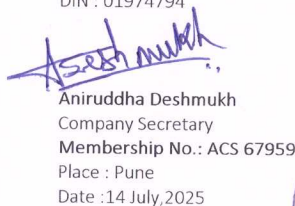 DIN : 01974794
ADeshmukh
Aniruddha Deshmukh
Company Secretary
Membership No.: ACS 67959
Place : Pune
Date :14 July,2025